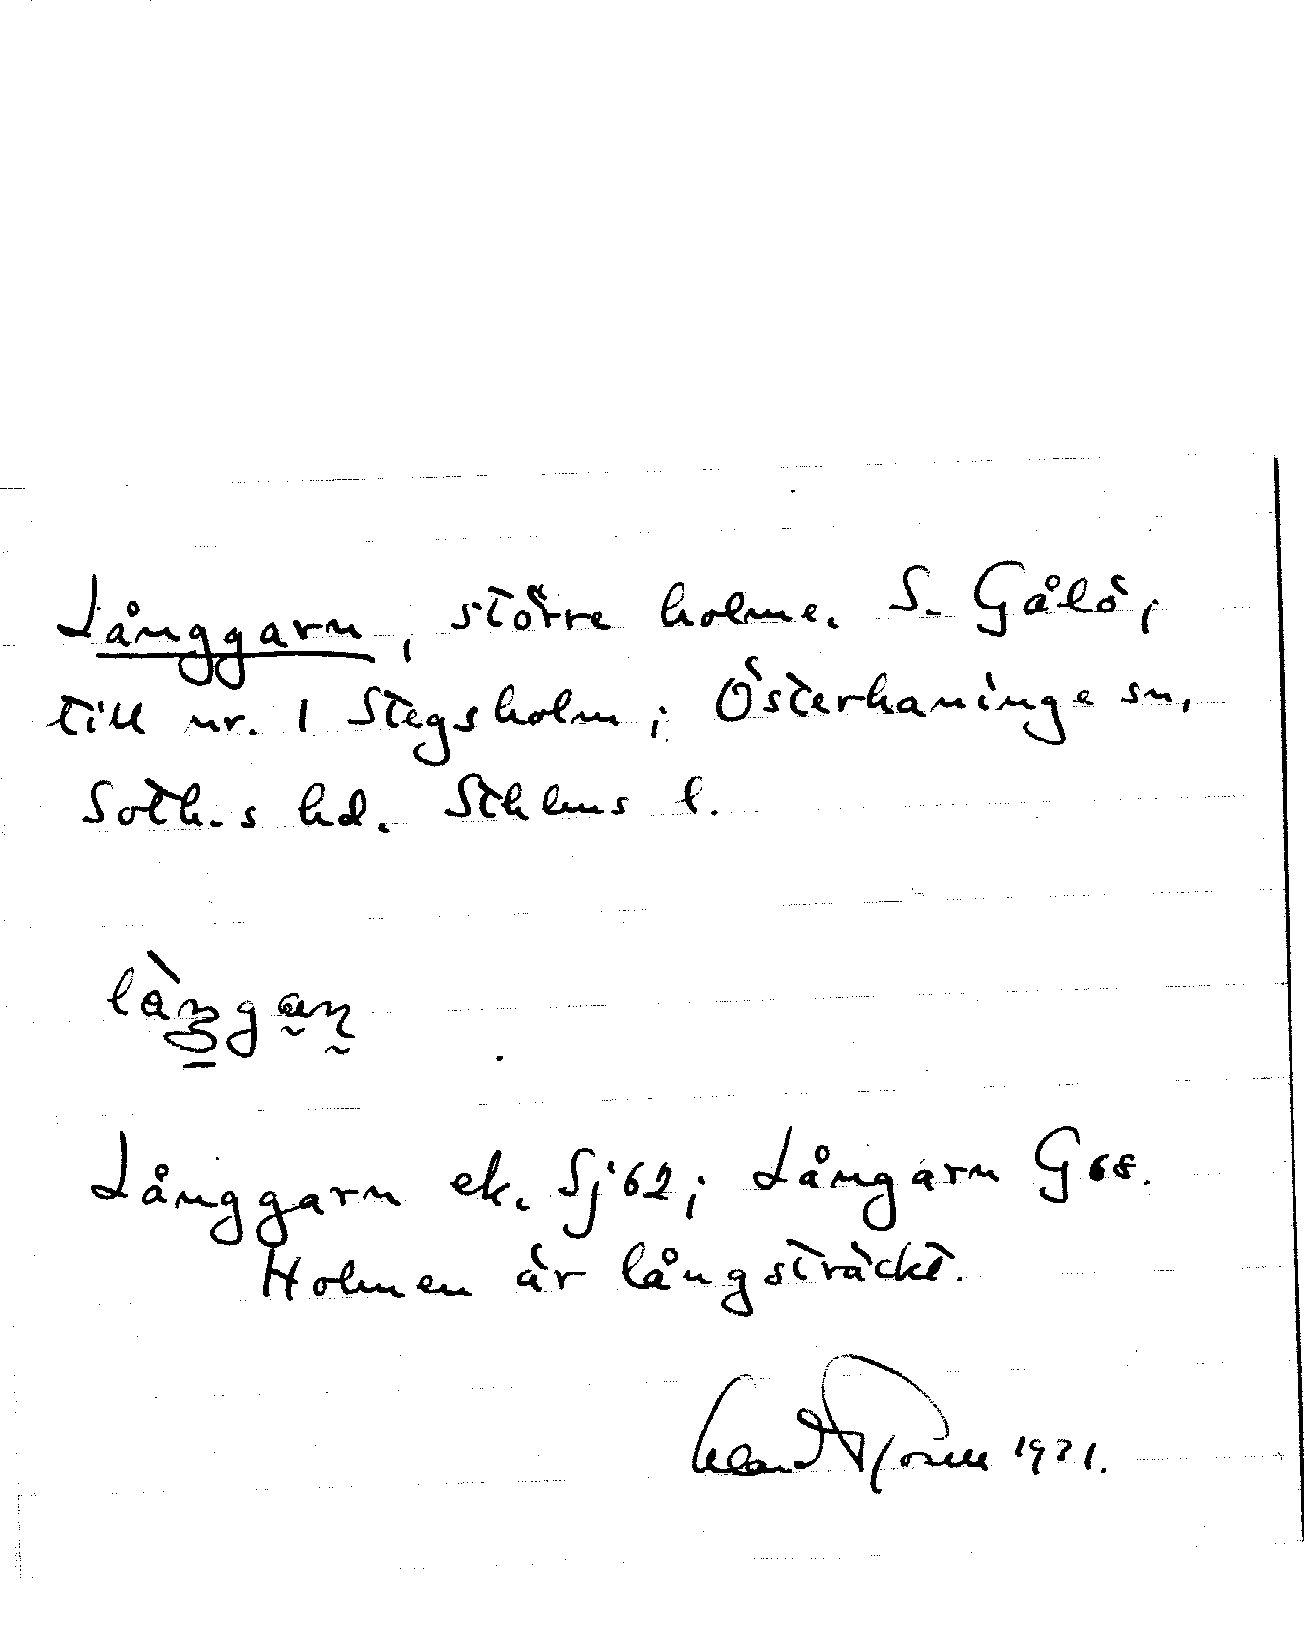 Långgarn, större holme. S. Gålö,
till nr. 1 Stegsholm; Österhaninge sn,
Soth.s hd. Sthlms l.
Långgarn ek. Sj'62; Långarn G68.
Holmen är långsträckt.